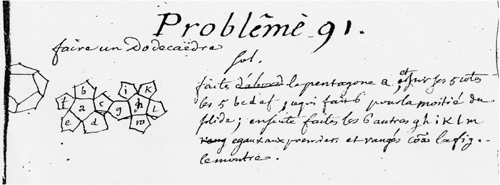 Problême 91.
faire un Dodecaëdre
Sol.
faites d'abord le pentagone a et sur ses 5 cotes
les 5 bcdef, ce qui fait 6 pour la moitié du
solide; ensuite faites les 6 autres g h i K l m
egaux aux premiers et rangés coñe la fig.
le montre.
b i K
f a c g h L
e d m